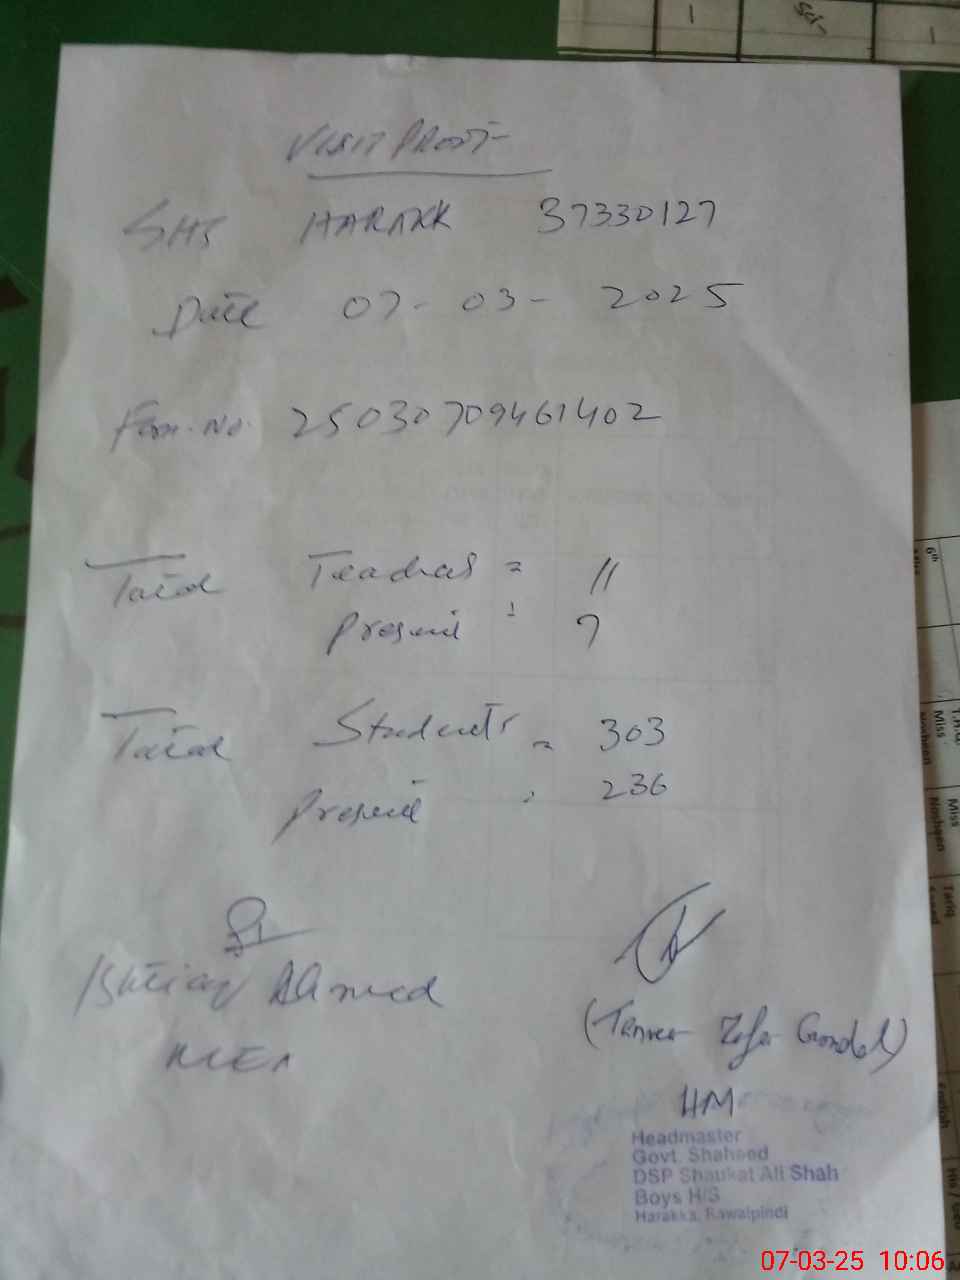 VISIT PROOF
GHS HARAKK 37330127
Date 07-03-2025
Form.No. 25030709461402
Total Teachers = 11
Present : 9
Total Students = 303
Present : 236
Ishtiaq Ahmed
MEA
(Tanveer Zafar Gondal)
HM
Headmaster
Govt. Shaheed
DSP Shaukat Ali Shah
Boys H/S
Harakka, Rawalpindi
6th
Miss
Nosheen
Miss
Nosheen
Tariq
English
07-03-25 10:06